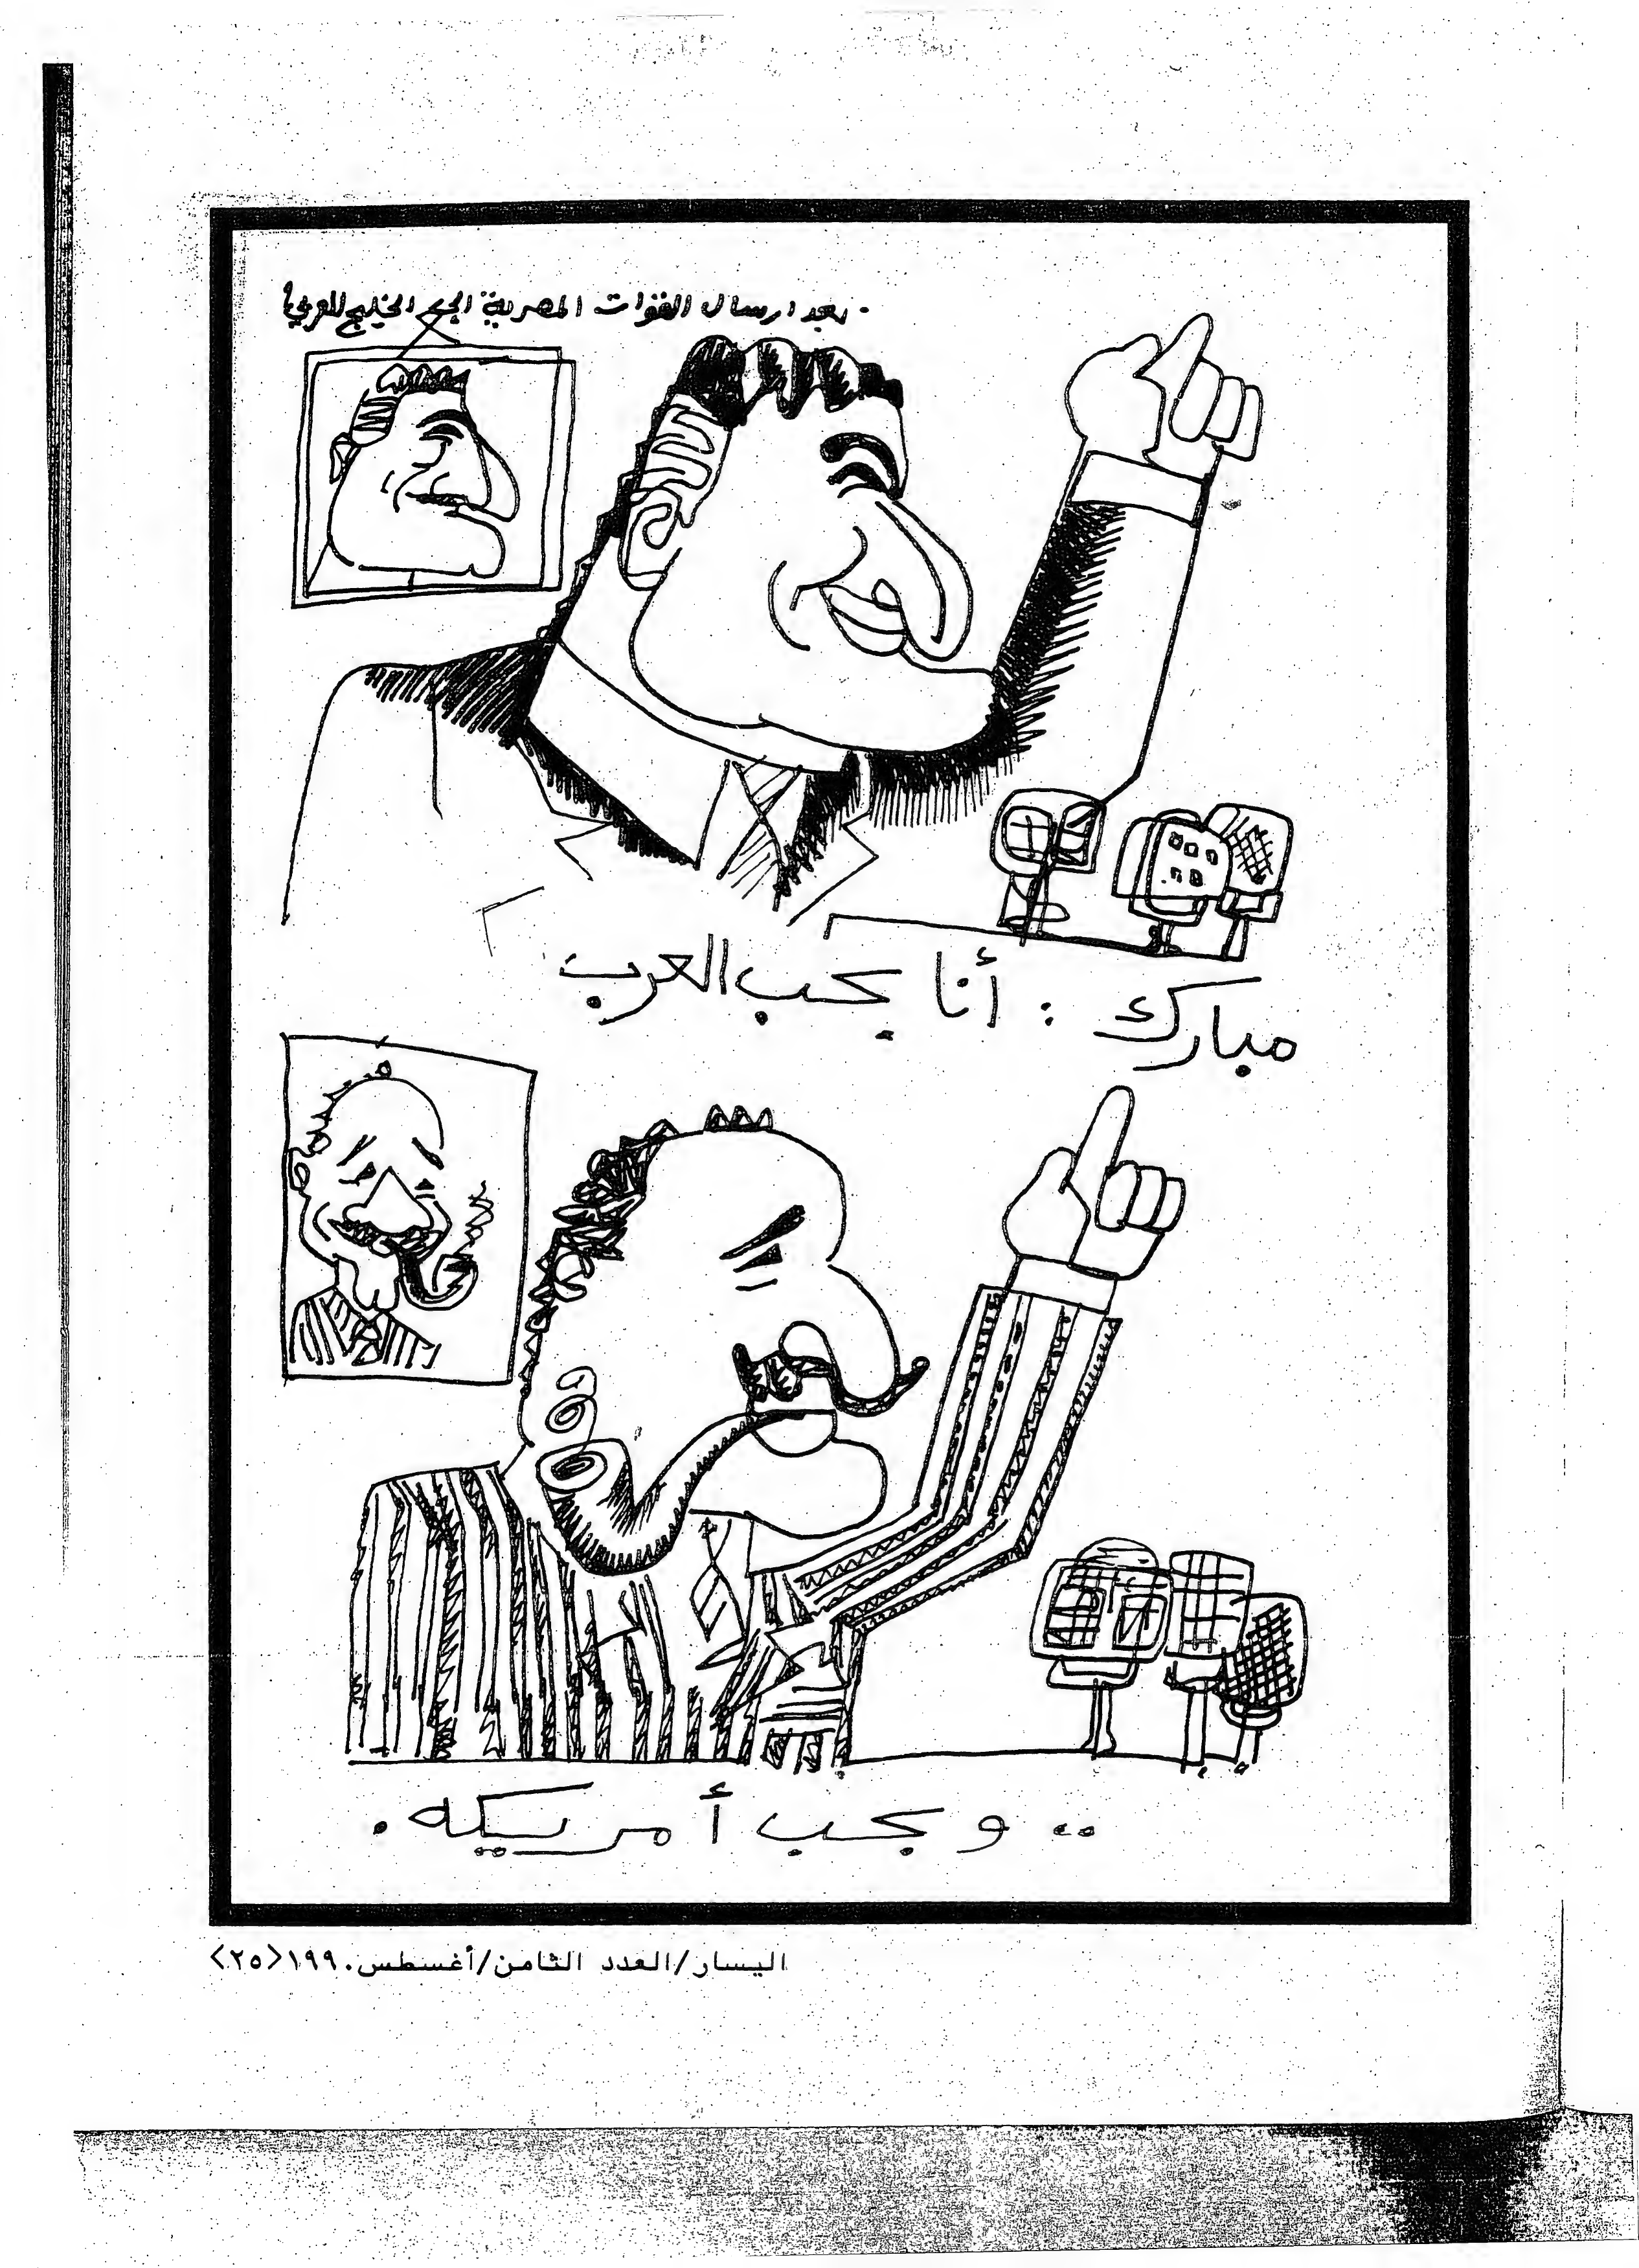 . بعد ارسال القوات المصرية الى الخليج العربى
مبارك : أنا بحب العرب
.. و بحب أمريكه .
اليسار/العدد الثامن/أغسطس.١٩٩<٢٥>